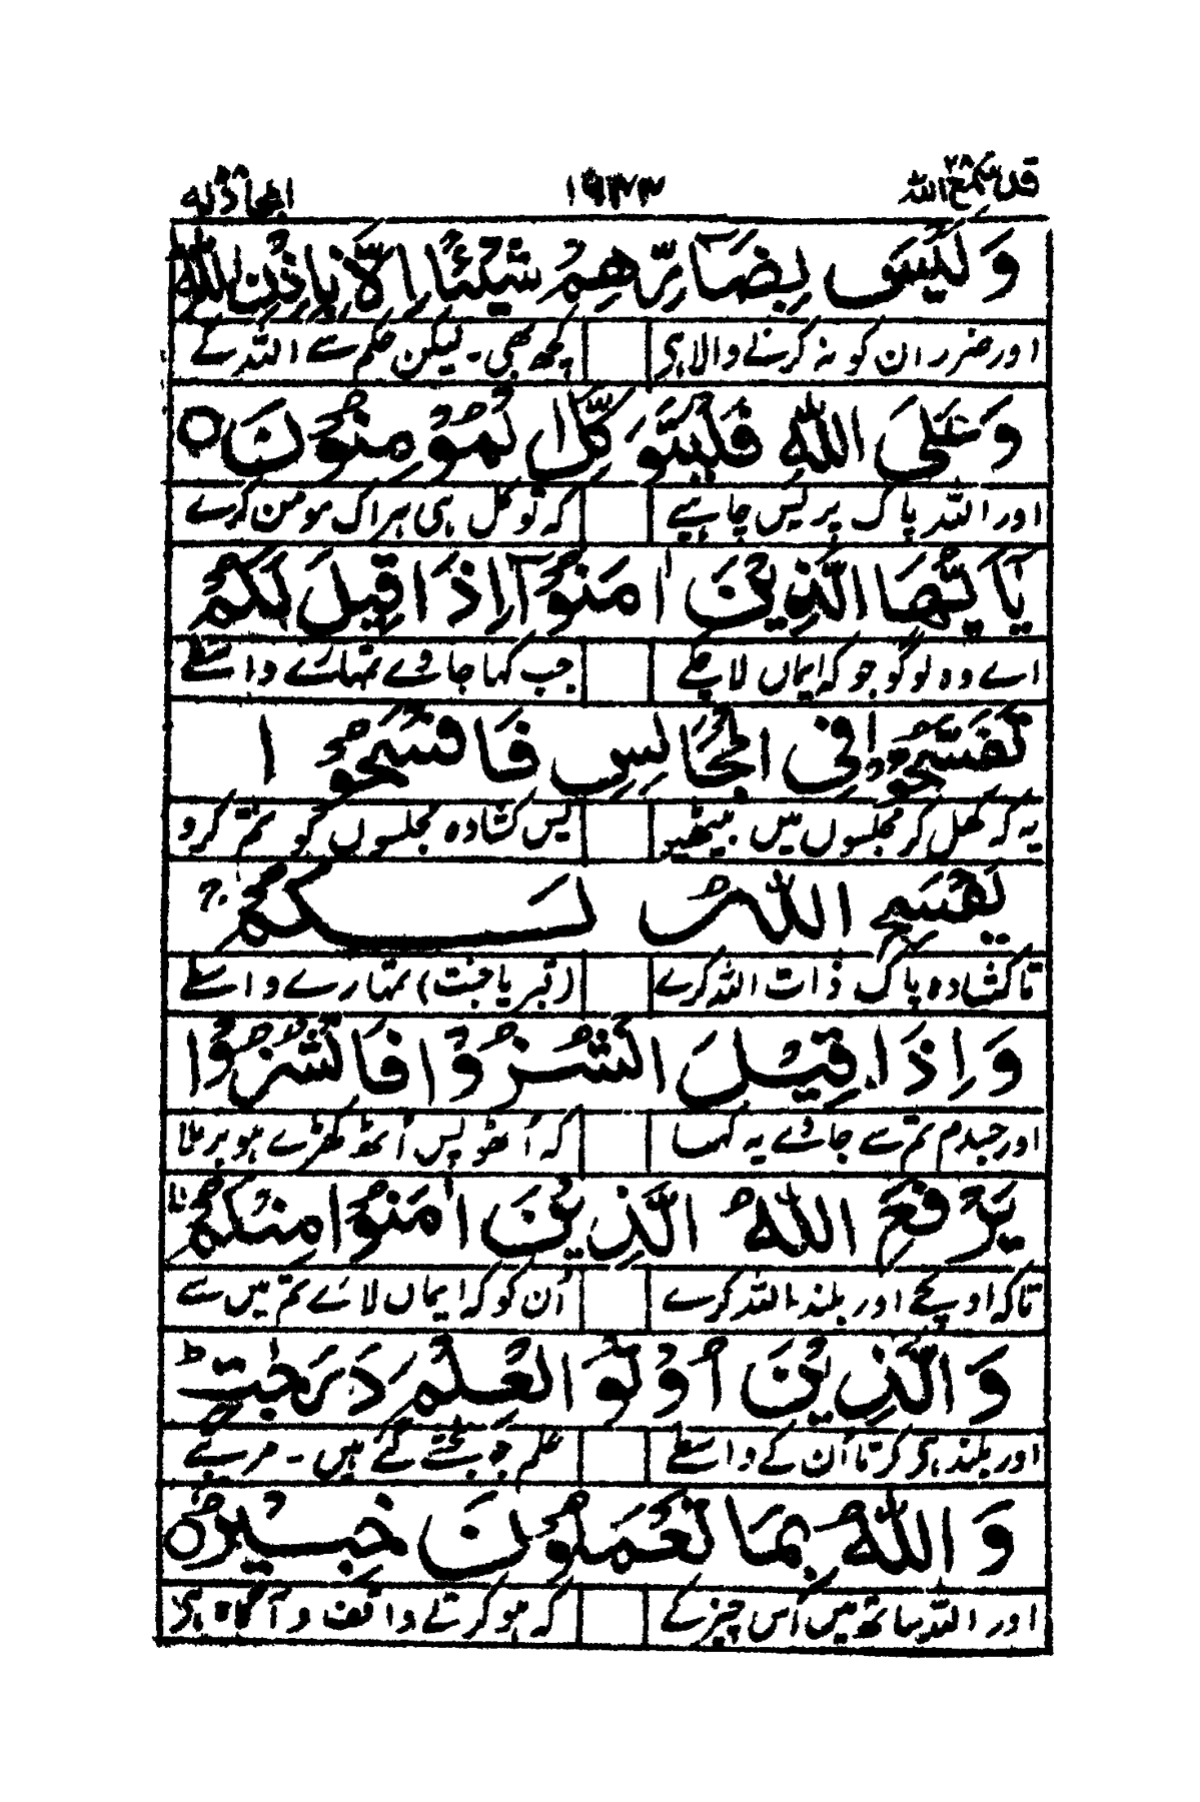 قد سمع الله ٢٨ ١٩٣٣ المجادلة ٥٨
وَلَيْسَ بِضَآرِّهِمْ شَيْئًا اِلَّا بِاِذْنِ اللّٰهِ
اور ضرر ان کو نہ کرنے والا ہی کچھ بھی۔ لیکن حکم سے اللہ کے
وَعَلَى اللّٰهِ فَلْيَتَوَكَّلِ الْمُؤْمِنُوْنَ ○
اور اللہ پاک پر پس چاہیے کہ توکل ہی ہر اک مومن کرے
يٰٓاَيُّهَا الَّذِيْنَ اٰمَنُوْٓا اِذَا قِيْلَ لَكُمْ
اے وہ لوگو جو کہ ایماں لا چکے جب کہا جاوے تمہارے واسطے
تَفَسَّحُوْا فِى الْمَجَالِسِ فَافْسَحُوْا
یہ کہ کھل کر مجلسوں میں بیٹھیو پس کشادہ مجلسوں کو تم کرو
يَفْسَحِ اللّٰهُ لَكُمْ ۚ
تا کشادہ پاک ذات اللہ کرے (قبر یا جنت) تمہارے واسطے
وَاِذَا قِيْلَ انْشُزُوْا فَانْشُزُوْا
اور جس دم تم سے جاوے یہ کہا کہ اُٹھو پس اُٹھ کھڑے ہو برملا
يَرْفَعِ اللّٰهُ الَّذِيْنَ اٰمَنُوْا مِنْكُمْ ۙ
تاکہ اونچے اور بلند اللہ کرے اُن کو کہ ایماں لائے تم میں سے
وَالَّذِيْنَ اُوْتُوا الْعِلْمَ دَرَجٰتٍ ؕ
اور بلند ہی کرتا اُن کے واسطے علم جو بخشے گئے ہیں۔ مرتبے
وَاللّٰهُ بِمَا تَعْمَلُوْنَ خَبِيْرٌ ○
اور اللہ ساتھ میں اُس چیز کے کہ ہو کرتے واقف و آگاہ ہی